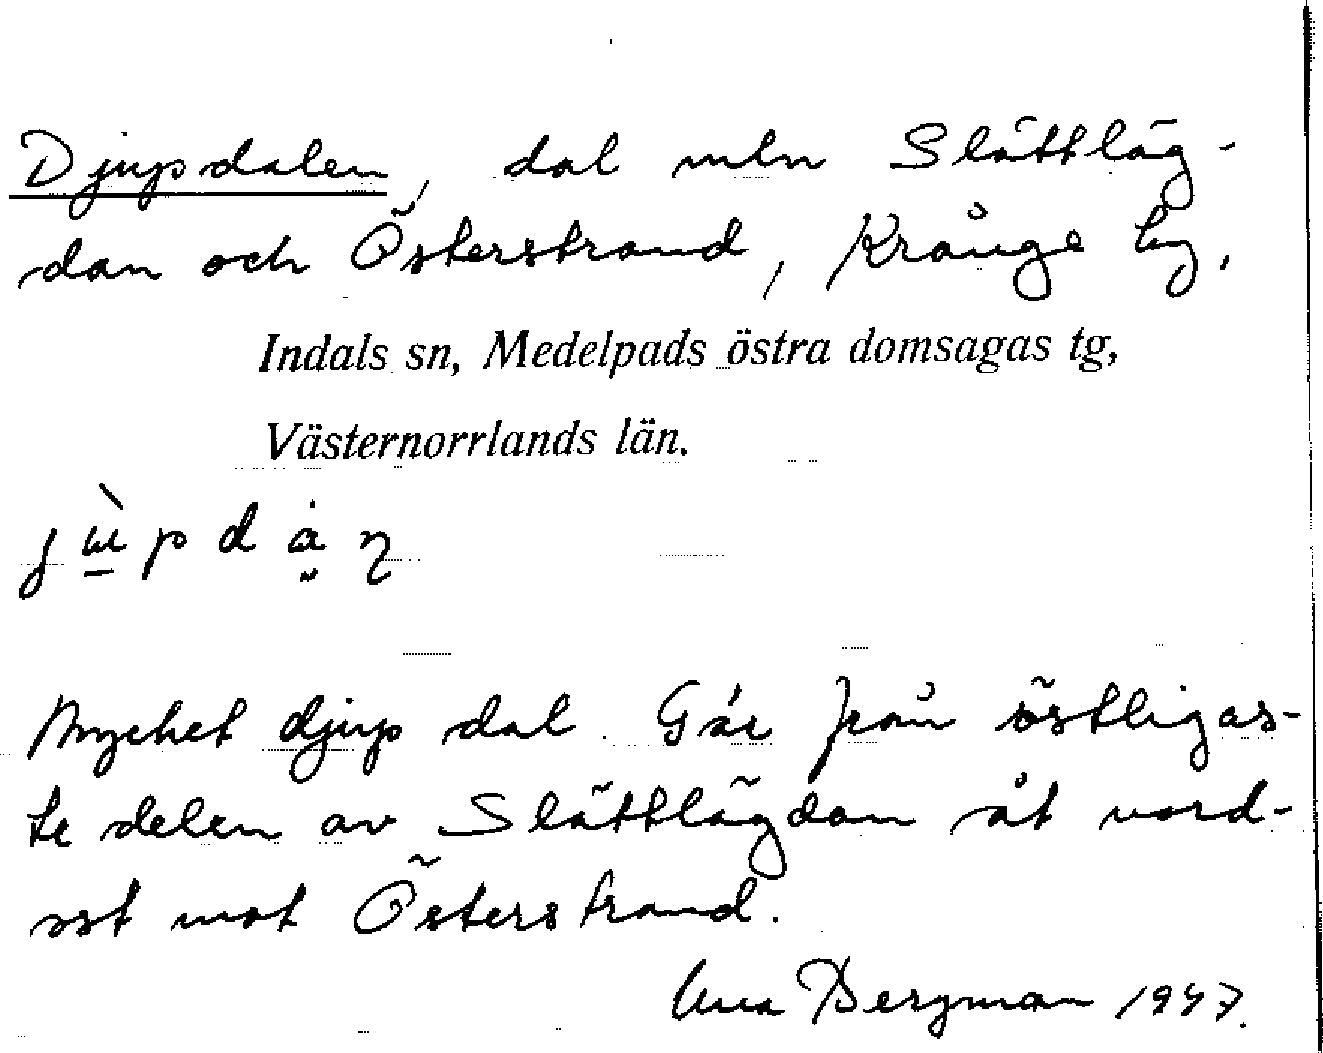 Djupdalen, dal mln Slättläg-
dan och Österstrand, Krånge by,
Indals sn, Medelpads östra domsagas tg,
Västernorrlands län.
Mycket djup dal. Går från östligas-
te delen av Slättlägdan åt nord-
ost mot Österstrand.
Bergman 1947.